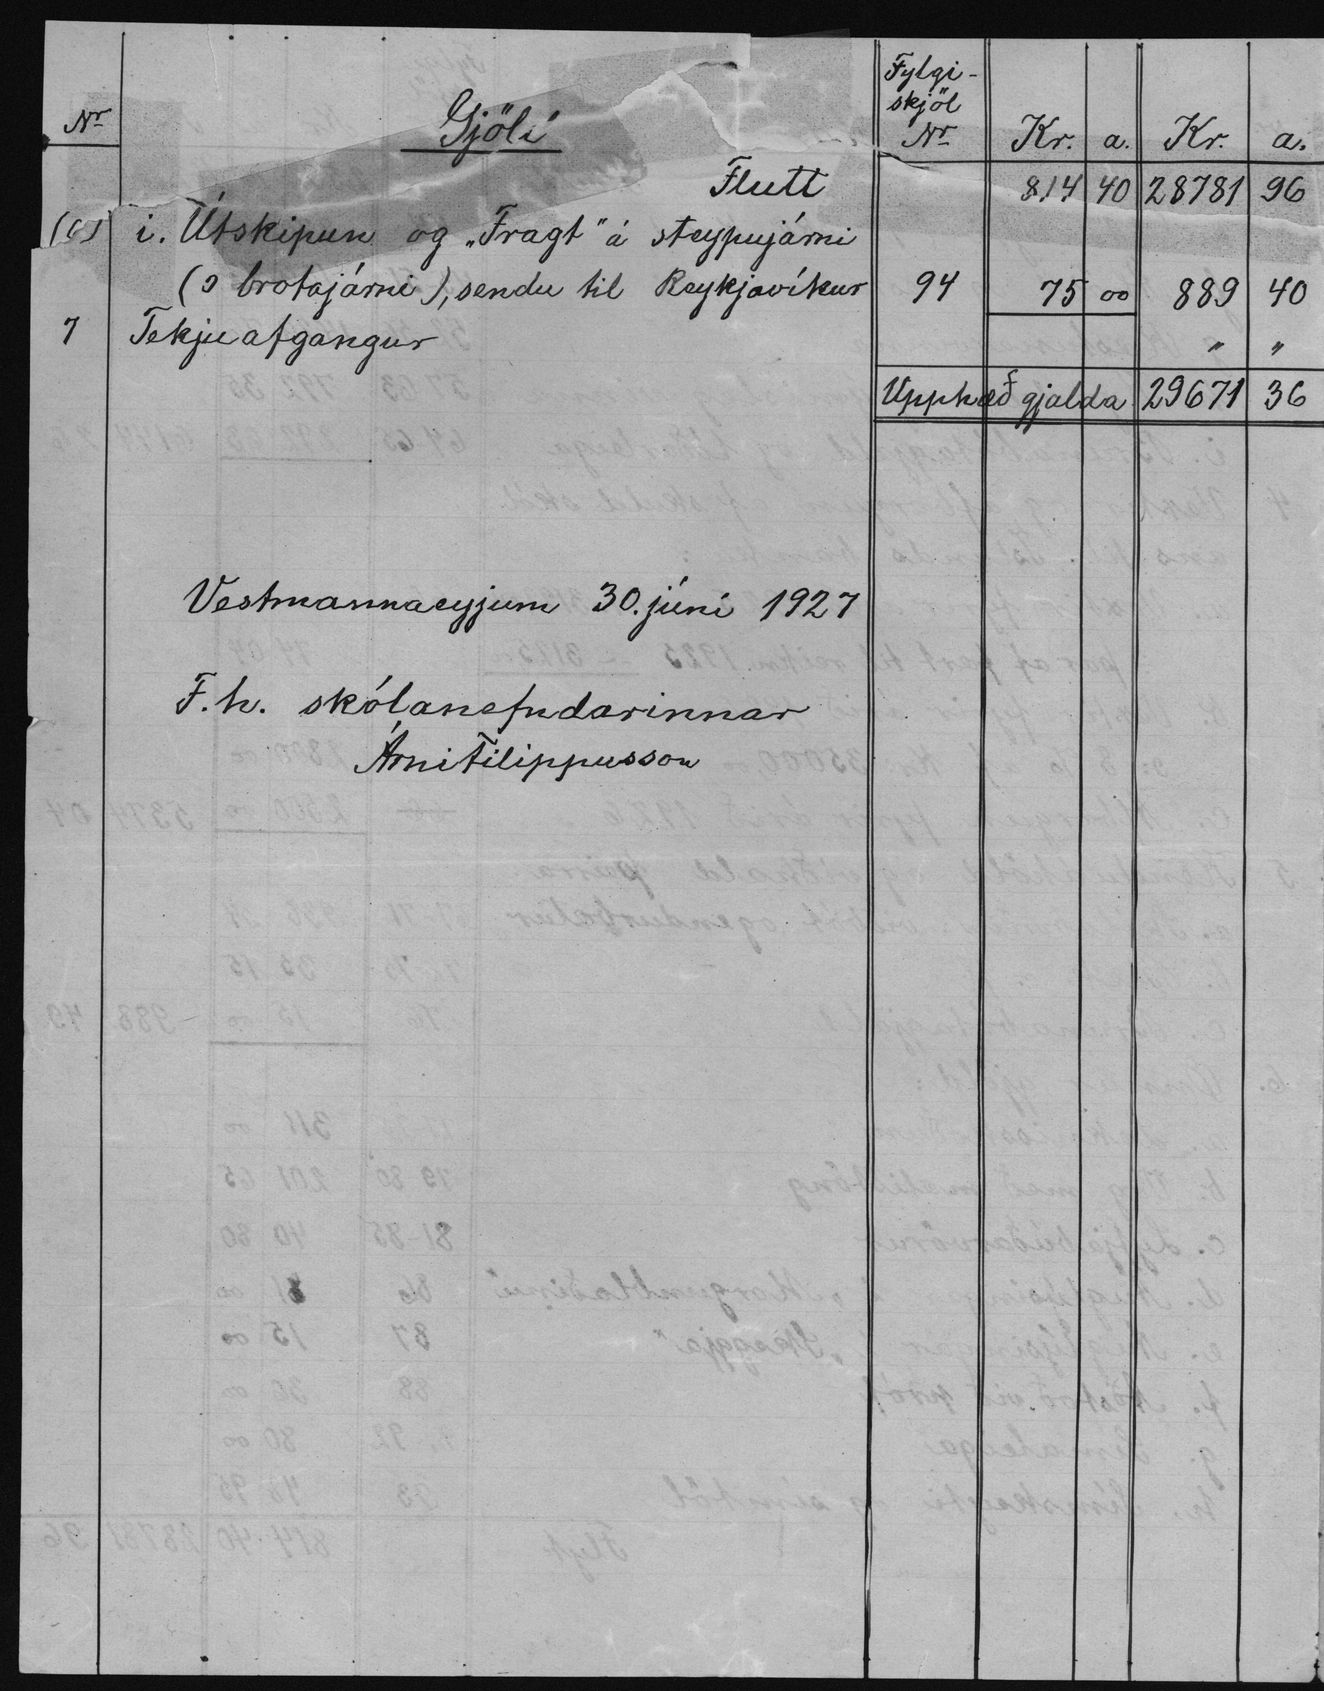 Fylgi-
skjöl
Nr Gjöld Nr Kr. a. Kr. a.
Flutt 814 40 28781 96
(6) i. Útskipun og „Fragt" á steypujárni
(ɔ brotajárni), sendu til Reykjavíkur 94 75 00 889 40
7 Tekjuafgangur " "
Upphæð gjalda 29671 36
Vestmannaeyjum 30. júní 1927
F.h. skólanefndarinnar
Árni Filippusson